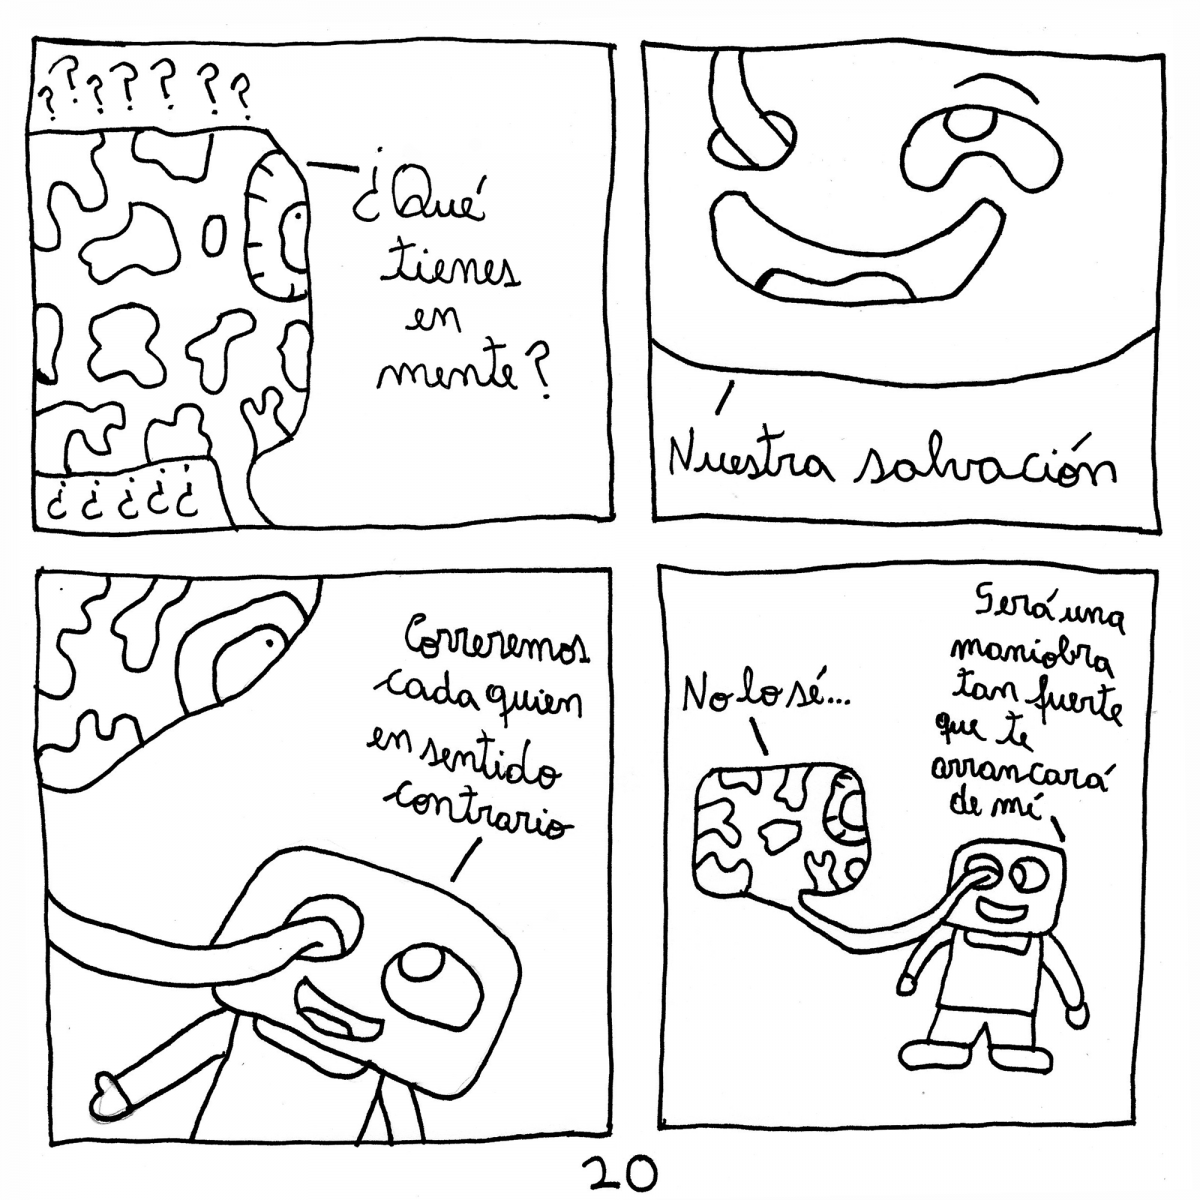 ? ? ? ? ? ? ?
¿Qué
tienes
en
mente?
¿ ¿ ¿ ¿ ¿
Nuestra salvación
Correremos
cada quien
en sentido
contrario
No lo sé...
Será una
maniobra
tan fuerte
que te
arrancará
de mí
20